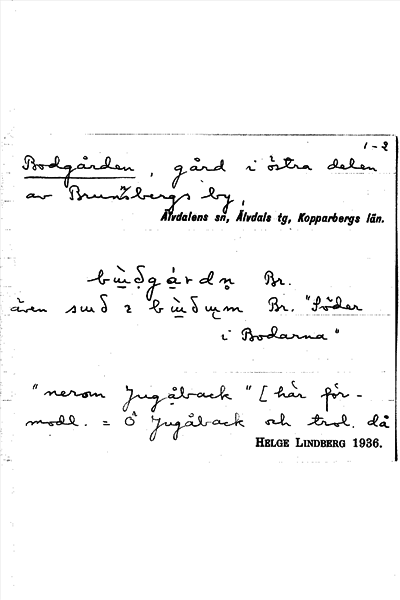 1-2
Bodgården, gård i östra delen
av Brunnsbergs by,
Älvdalens sn, Älvdals tg, Kopparbergs län.
Br.
även Br. "Söder
i Bodarna"
"nerom Jugåback" [här för-
modl. = Ö Jugåback och trol. då
HELGE LINDBERG 1936.